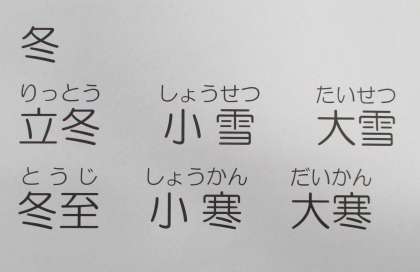 冬
りっとう しょうせつ たいせつ
立冬 小雪 大雪
とうじ しょうかん だいかん
冬至 小寒 大寒